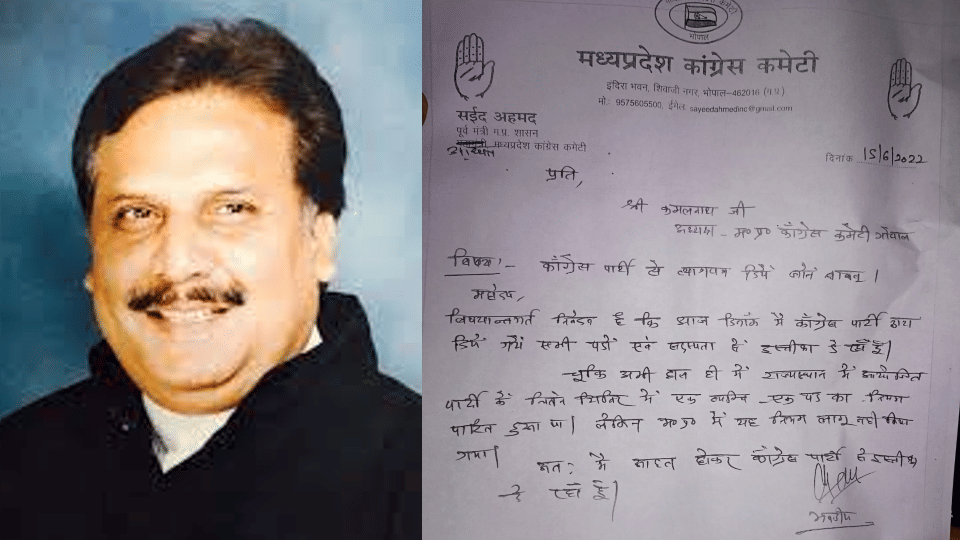 भोपाल
मध्यप्रदेश कांग्रेस कमेटी
इंदिरा भवन, शिवाजी नगर, भोपाल-462016 (म.प्र.)
मो.: 9575605500, ईमेल: sayeedahmedinc@gmail.com
सईद अहमद
पूर्व मंत्री म.प्र. शासन
मध्यप्रदेश कांग्रेस कमेटी
दिनांक 15/6/2022
प्रति,
श्री कमलनाथ जी
अध्यक्ष - म०प्र० काँग्रेस कमेटी भोपाल
विषय :- काँग्रेस पार्टी से त्यागपत्र दिये जाने बावत् ।
महोदय,
विषयान्तर्गत निवेदन है कि आज दिनाँक में काँग्रेस पार्टी द्वारा
दिये गये सभी पदों एवं सदस्यता से इस्तीफा दे रहाँ हूँ।
चूंकि अभी हाल ही में राजस्थान में आयोजित
पार्टी के चिंतन शिविर में एक व्यक्ति -एक पद का नियम
पारित हुआ था। लेकिन म०प्र० में यह नियम लागू नही किया
गया।
अतः मै आहत होकर काँग्रेस पार्टी से इस्तीफा
दे रहाँ हूँ।